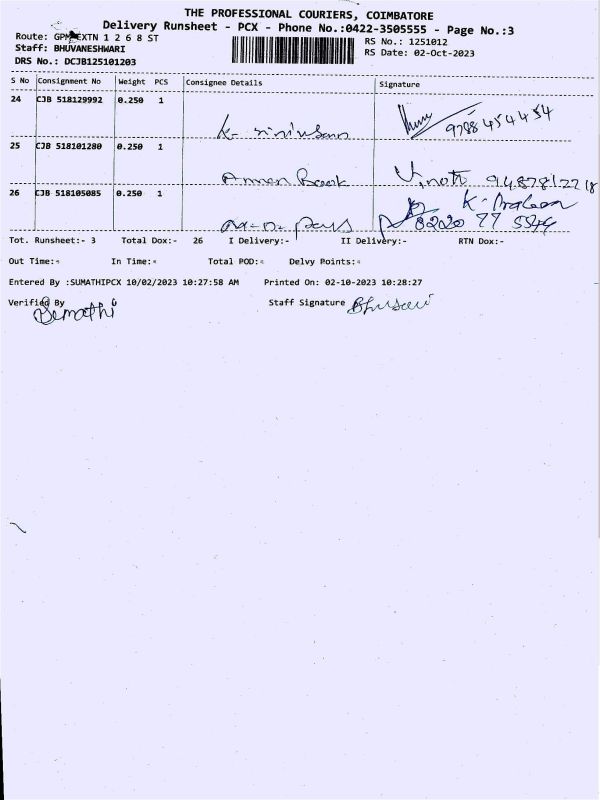 THE PROFESSIONAL COURIERS, COIMBATORE
Delivery Runsheet - PCX - Phone No.:0422-3505555 - Page No.:3
Route: GPM EXTN 1 2 6 8 ST
RS No.: 1251012
Staff: BHUVANESHWARI
RS Date: 02-Oct-2023
DRS No.: DCJB125101203
S No Consignment No Weight PCS Consignee Details Signature
24 CJB 518129992 0.250 1 K- 9788 454454
25 CJB 518101280 0.250 1 Vinoth 9487812218
26 CJB 518105085 0.250 1 K-
8220 77
Tot. Runsheet:- 3 Total Dox:- 26 I Delivery:- II Delivery:- RTN Dox:-
Out Time:- In Time:- Total POD:- Delvy Points:-
Entered By :SUMATHIPCX 10/02/2023 10:27:58 AM Printed On: 02-10-2023 10:28:27
Verified By Staff Signature